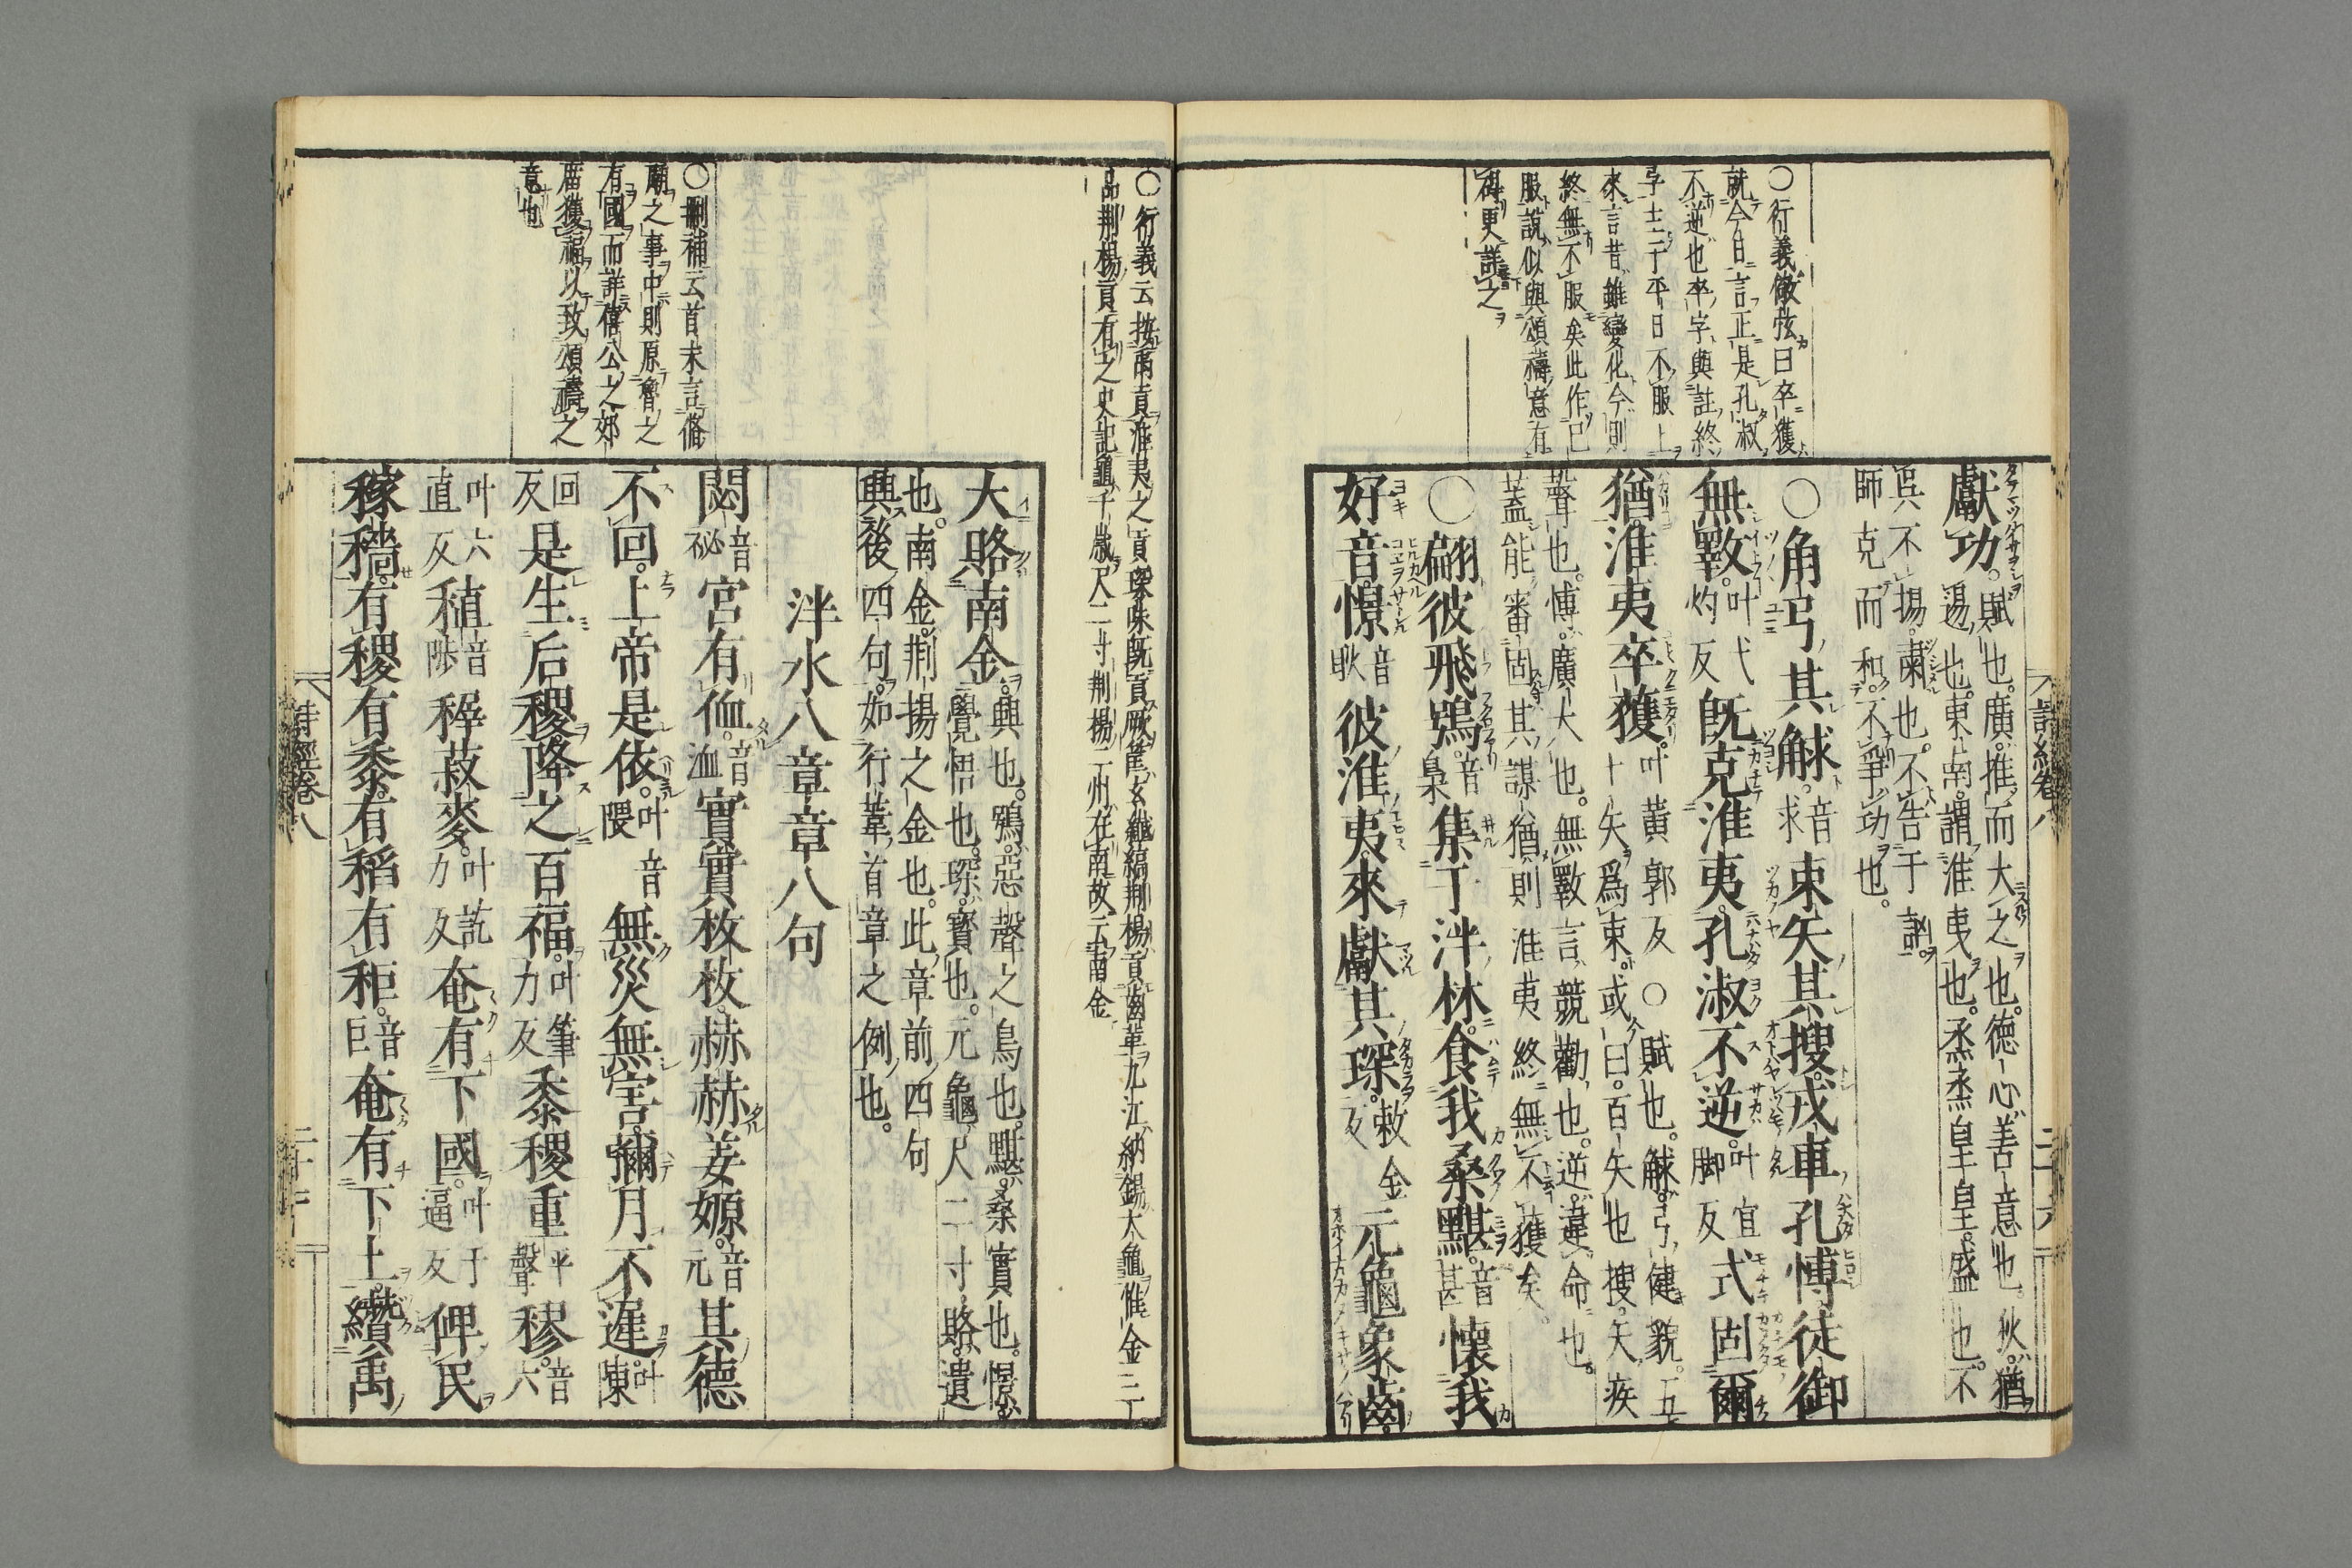 ○衍義徽弦曰卒獲
就今日言正是孔淑
不逆也卒字與註終
字士于平日不服上
來言昔雖變化今則
終無不服矣此作已
服說似與頌禱意有
碍更詳之
獻功。賦也。廣。推而大之也。德心。善意也。狄。猶
逷也。東南。謂淮夷也。烝烝皇皇。盛也。不
吳不揚。肅也。不告于訩。
師克而和。不爭功也。
○角弓其觩。音求束矢其搜。戎車孔博徒御
無斁。叶弋灼反既克淮夷。孔淑不逆。叶宜脚反式固爾
猶。淮夷卒獲。叶黃郭反○賦也。觩。弓健貌。五十矢爲束。或曰。百矢也搜。矢疾
聲也。博。廣大也。無斁。言競勸也。逆。違命也。
蓋能審固其謀猶。則淮夷終無不獲矣。
○翩彼飛鴞。音梟集于泮林。食我桑黮。音甚懷我
好音。憬音耿彼淮夷。來獻其琛。敕金反元龜象齒。
○衍義云按禹貢淮夷之貢琛珠既貢厥篚玄纖縞荆楊貢齒革九江納錫大龜惟金三
品荆楊貢有之史記龜千歲尺二寸荆楊二州在南故云南金
大賂南金。興也。鴞。惡聲之鳥也。黮。桑實也。憬
覺悟也。琛。寶也。元龜。尺二寸。賂。遺
也。南金。荆揚之金也。此章前四句
興後四句。如行葦首章之例也。
泮水八章章八句
○刪補云首末言脩
廟之事中則原魯之
有國而詳僖公之郊
廟獲福以致頌禱之
意也
閟音祕宮有侐。音洫實實枚枚。赫赫姜嫄。音元其德
不回。上帝是依。叶音隈無災無害。彌月不遲。叶陳
回反是生后稷。降之百福。叶筆力反黍稷重平聲穋。音六
叶六直反稙音陟穉菽麥。叶訖力反奄有下國。叶于逼反俾民
稼穡。有稷有黍。有稻有秬。音巨奄有下土。纘禹
詩經卷八
二十六
詩經卷八
二十七